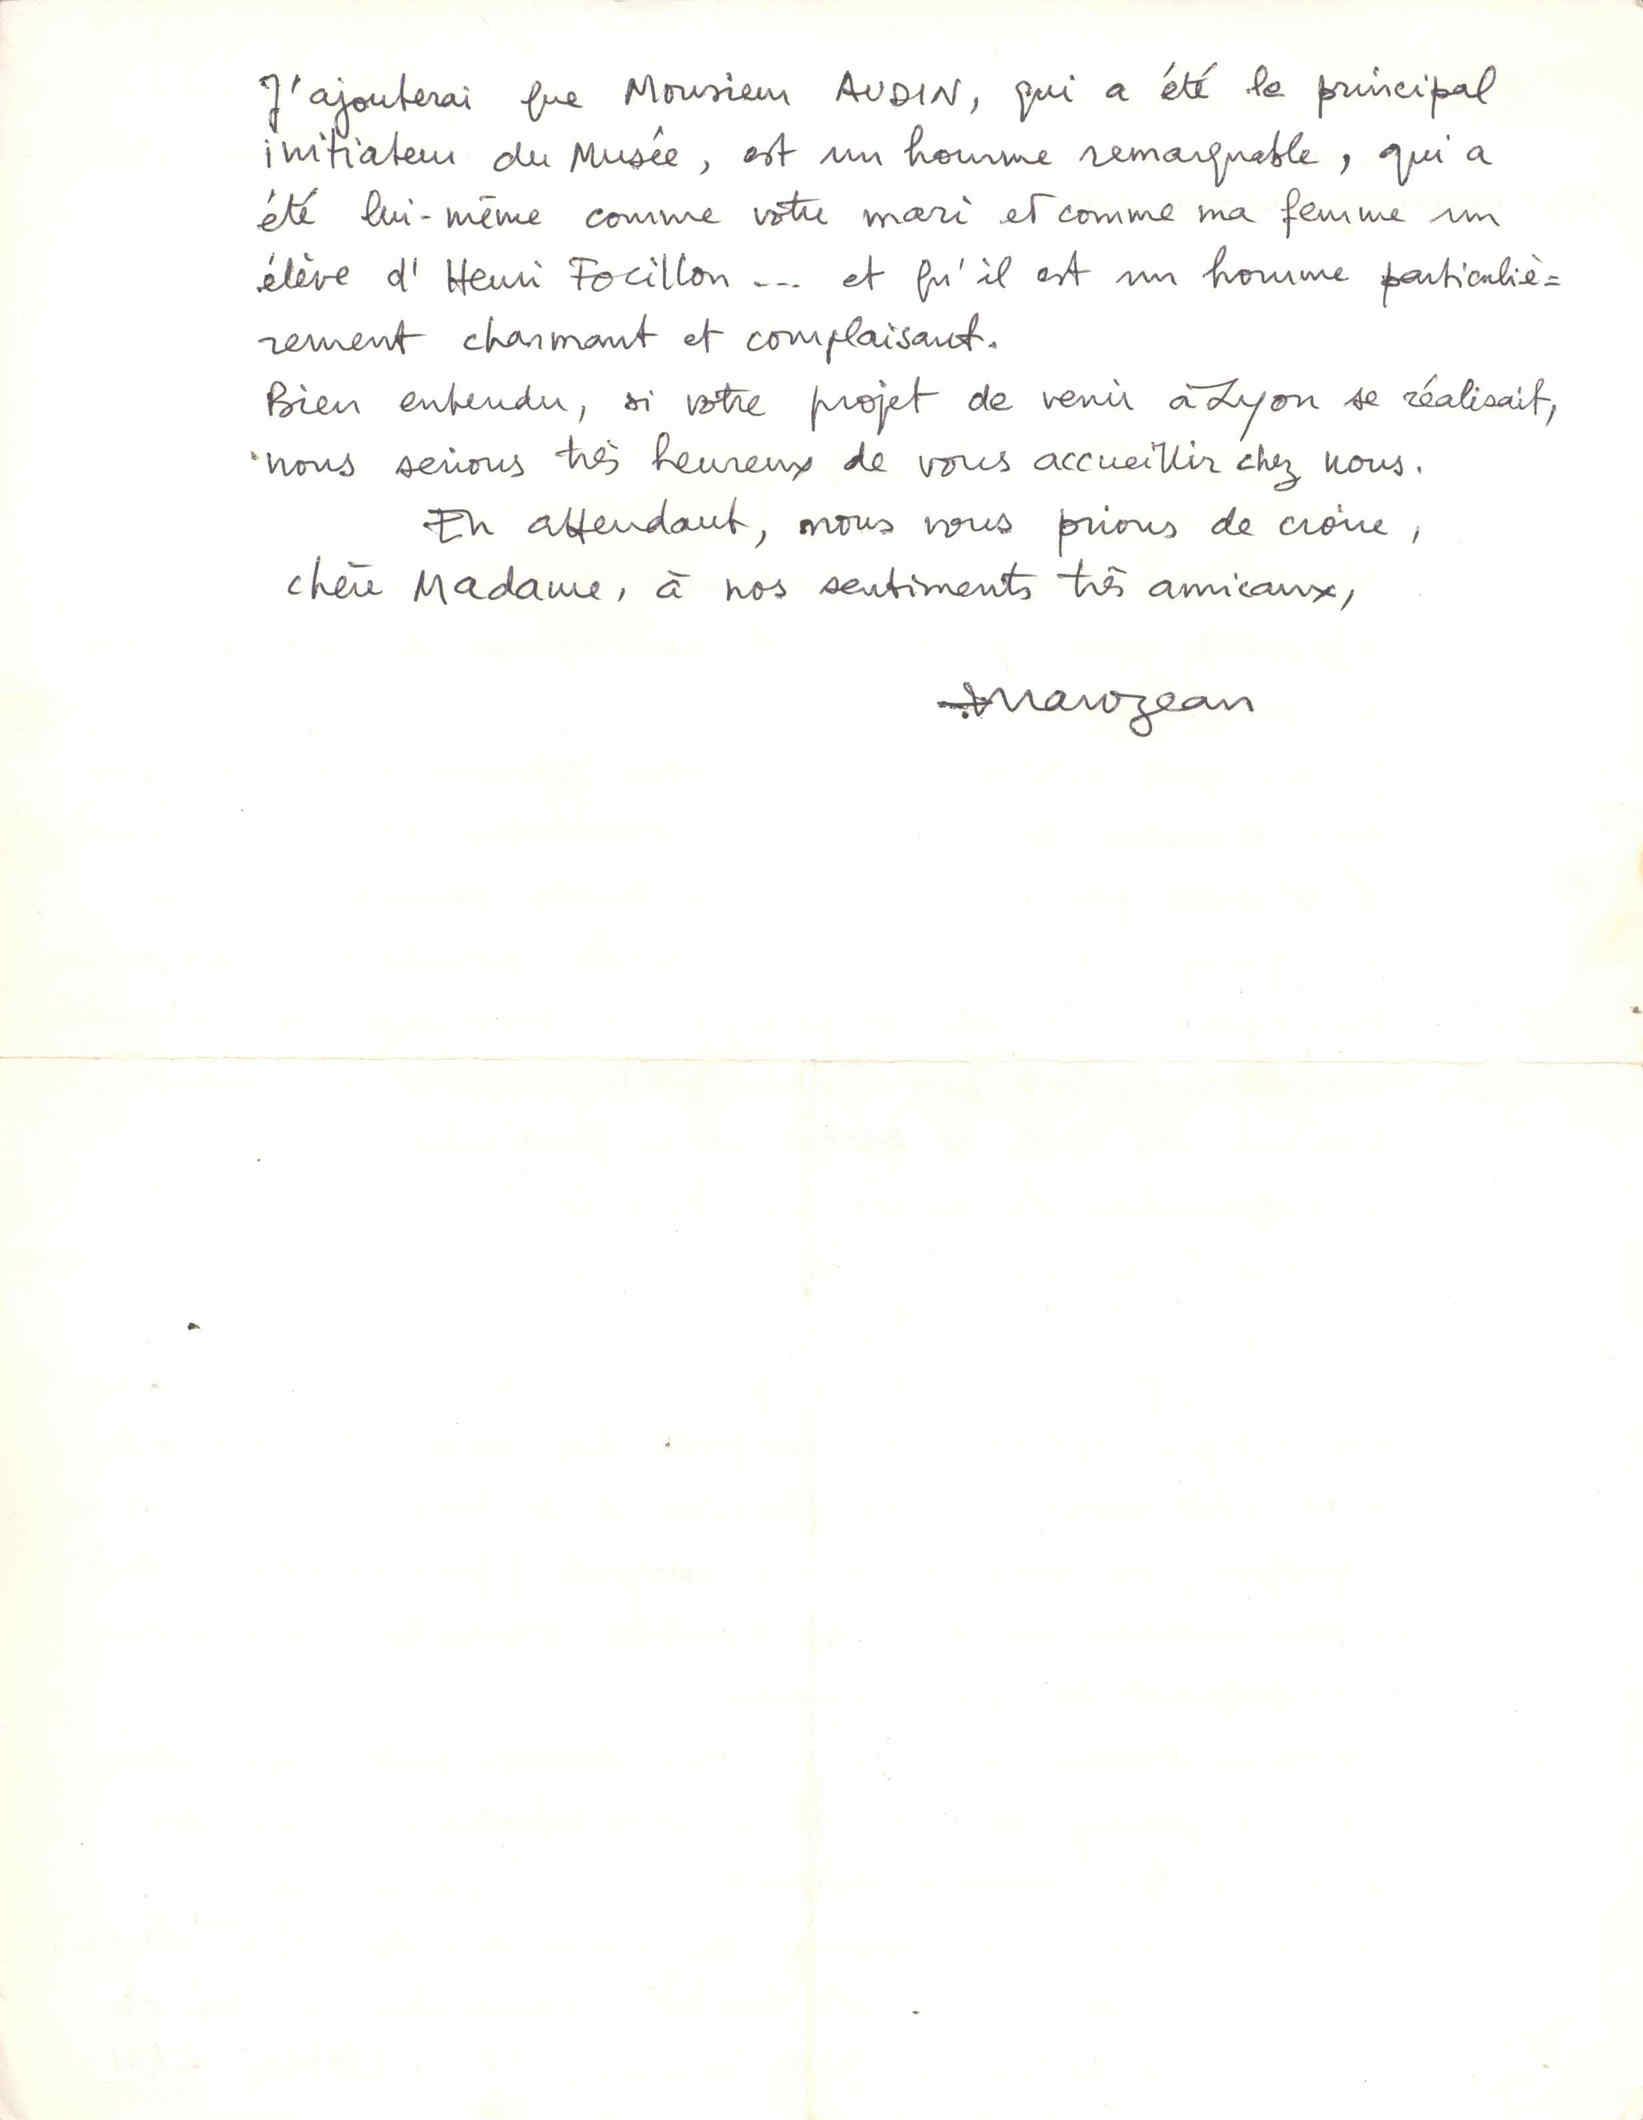 J'ajouterai que Monsieur AUDIN, qui a été le principal
initiateur du Musée, est un homme remarquable, qui a
été lui-même comme votre mari et comme ma femme un
élève d'Henri Focillon --- et qu'il est un homme particuliè=
rement charmant et complaisant.
Bien entendu, si votre projet de venir à Lyon se réalisait,
nous serions très heureux de vous accueillir chez nous.
En attendant, nous vous prions de croire,
chère Madame, à nos sentiments très amicaux,